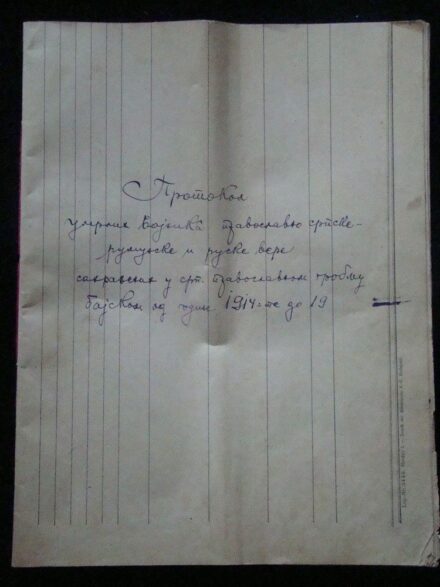 Протокол
умрлих војника православно српске-
румунске и руске вере
сахрањених у срп. православном гробљу
Бајском од годин 1914-те до 19